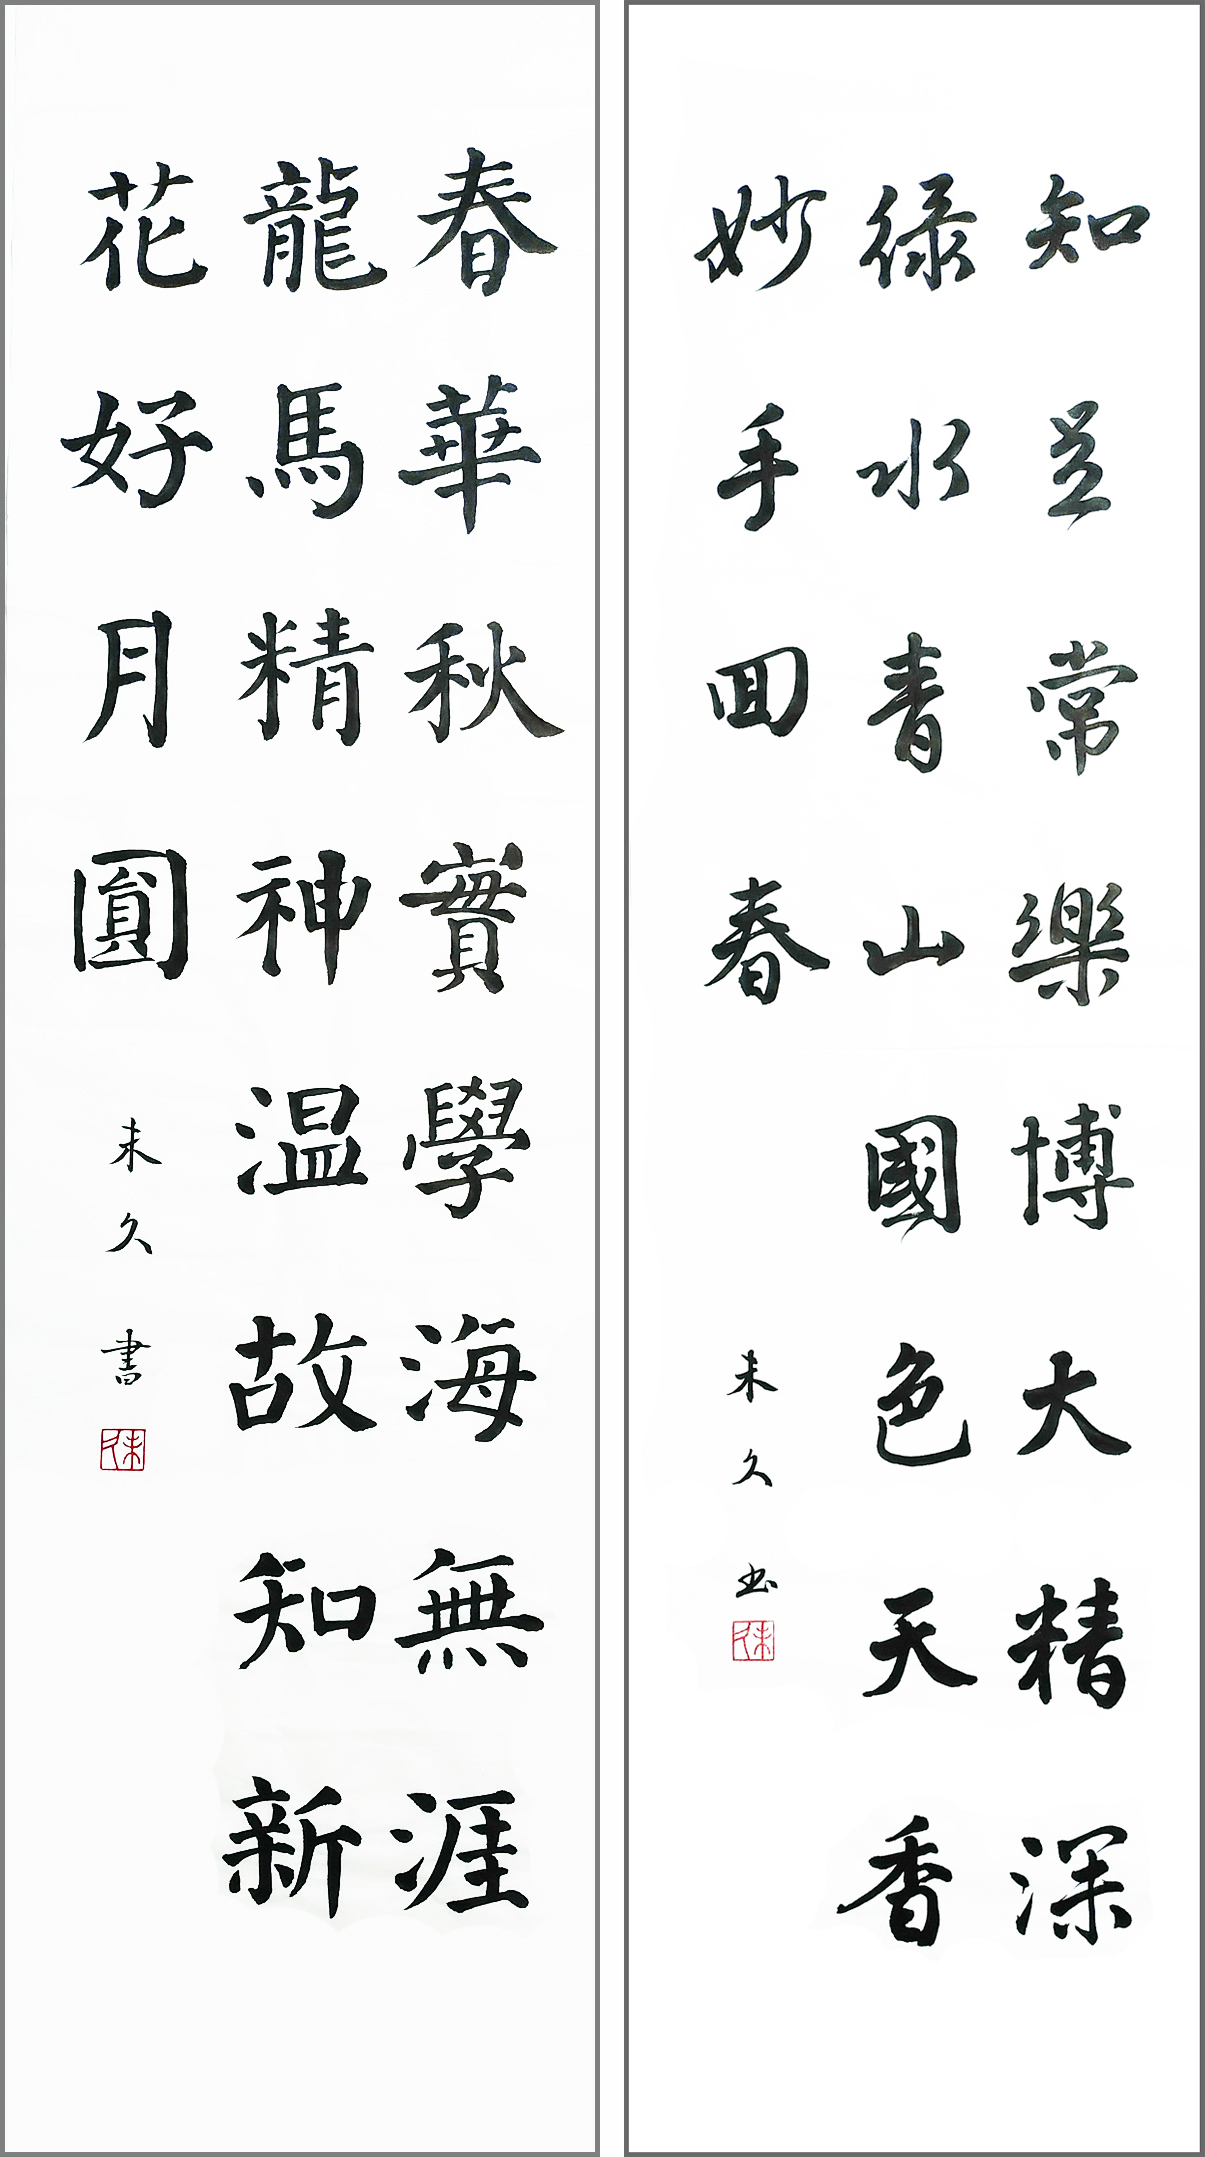 知足常樂博大精深
綠水青山國色天香
妙手回春
未久书
春華秋實學海無涯
龍馬精神温故知新
花好月圓
未久書